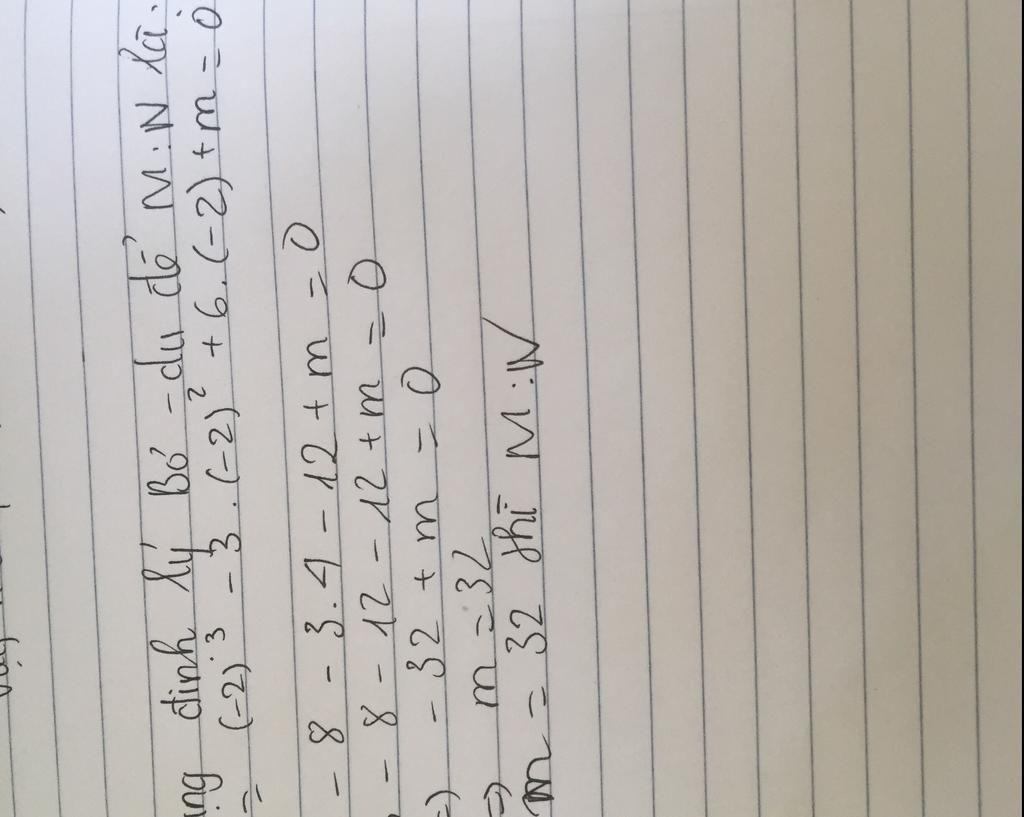 định lý Bơ - du để M : N là :
= (-2)³ - 3 . (-2)² + 6 . (-2) + m = 0
- 8 - 3 . 4 - 12 + m = 0
- 8 - 12 - 12 + m = 0
=) - 32 + m = 0
=) m = 32
m = 32 thì M : N